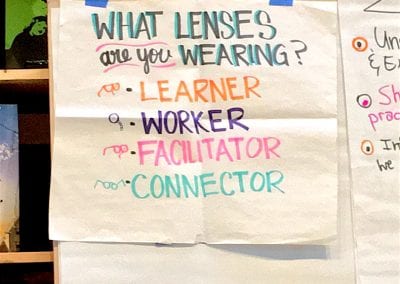 WHAT LENSES
are you WEARING?
• LEARNER
• WORKER
• FACILITATOR
• CONNECTOR
& E
Sh
prac
we